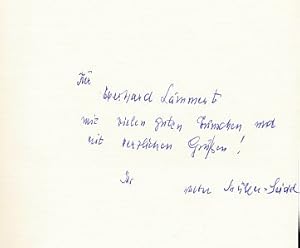 Für
Eberhard Lämmert
mit vielen guten Wünschen und
mit herzlichen Grüßen!
Ihr Walter Müller-Seidel